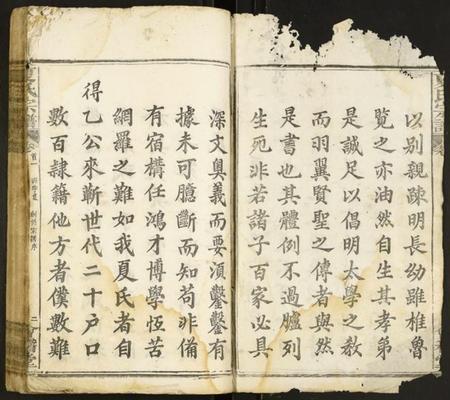 以別親疎明長幼雖椎魯
覽之亦油然自生其孝弟
是誠足以倡明大學之教
而羽翼賢聖之傳者與然
是書也其體例不過臚列
生死非若諸子百家必具
深文奥義而要湏鑿鑿有
據未可臆斷而知苟非備
有宿構任鴻才博學恆苦
網羅之難如我夏氏者自
得乙公來蘄世代二十户口
數百隸籍他方者僕數難
氏宗譜
卷首
二
氏宗譜